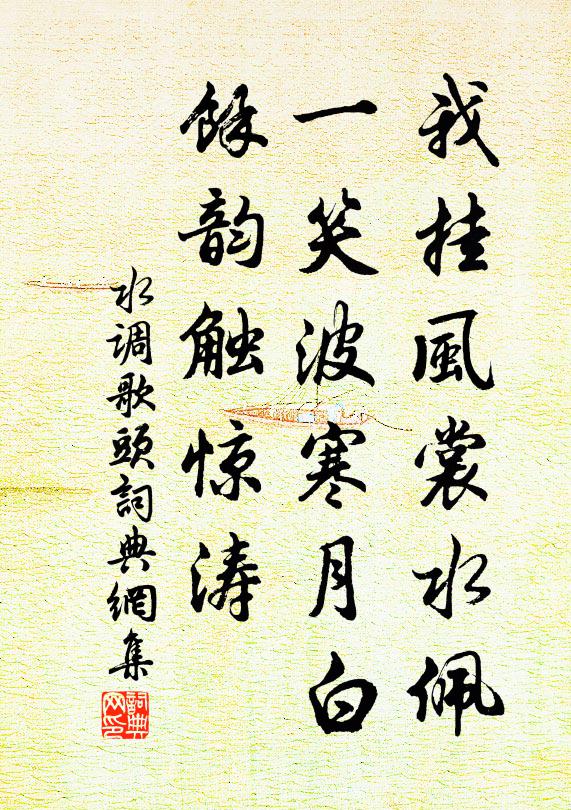 我挂風裳水佩
一笑波寒月白
餘韵触惊涛
水调歌頭詞典網集
詞典
网印